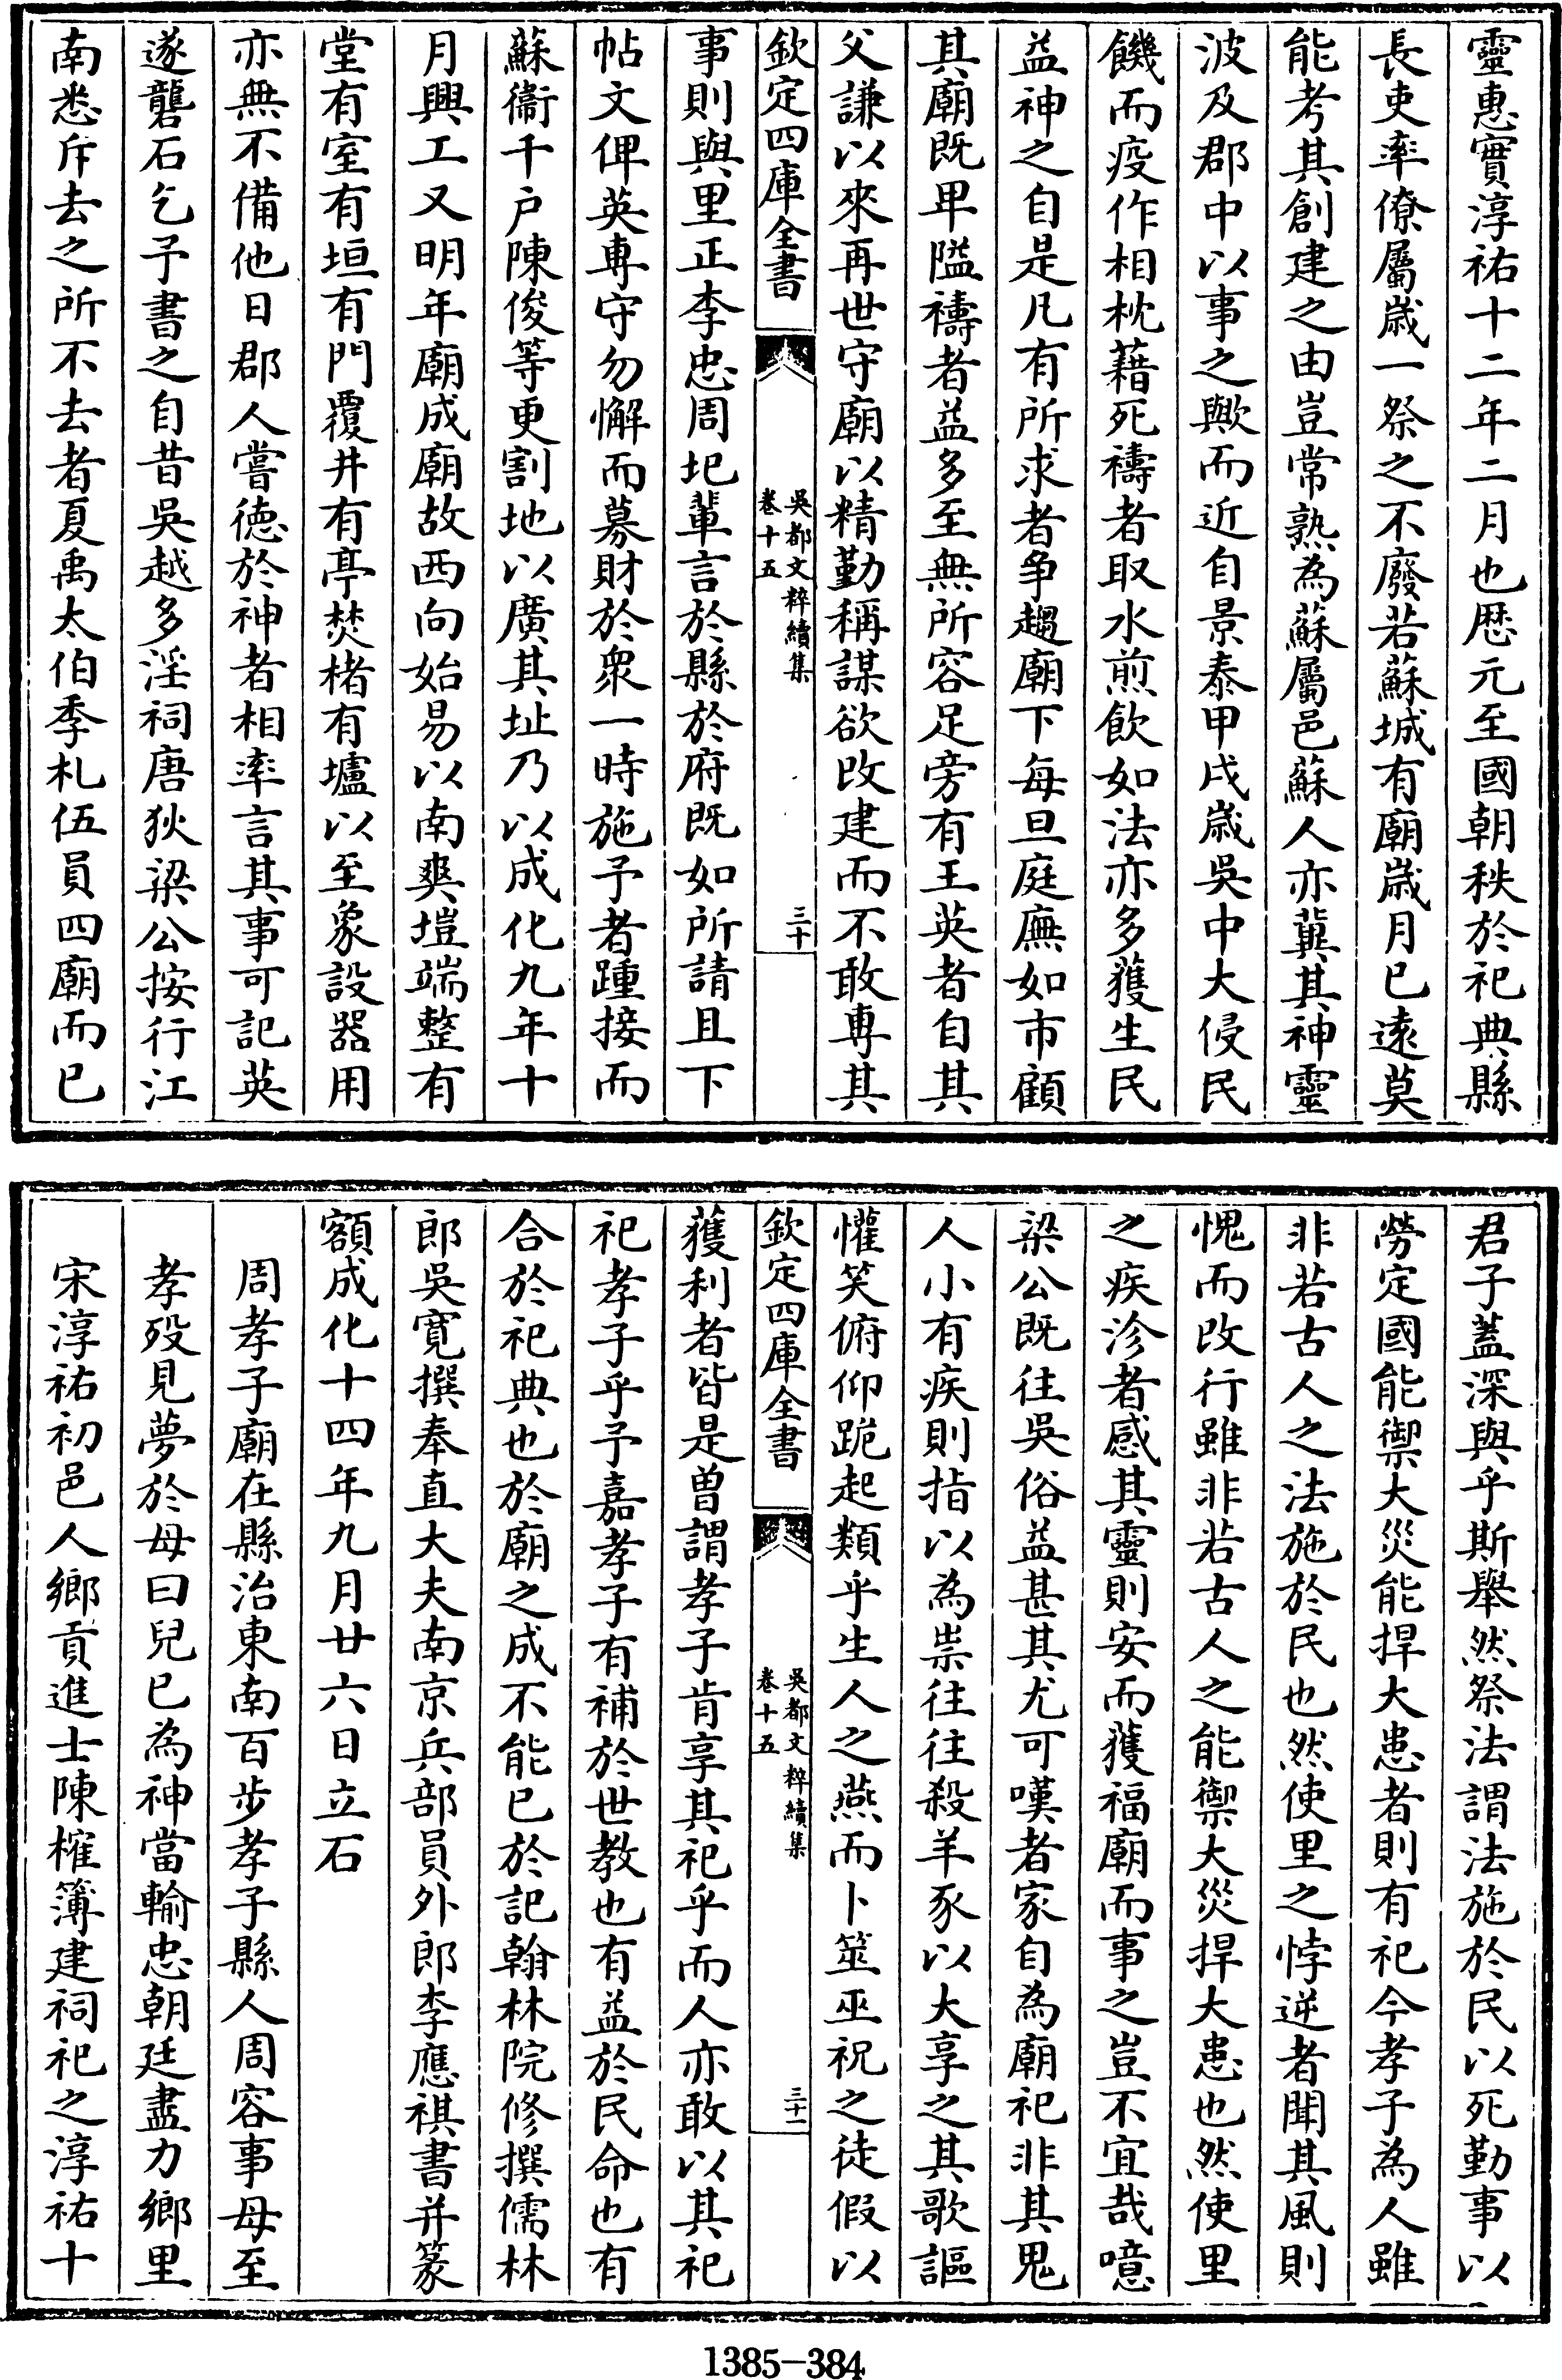 靈惠實淳祐十二年二月也歴元至國朝秩於祀典縣
長吏率僚屬嵗一祭之不廢若蘇城有廟嵗月已逺莫
能考其創建之由豈常熟為蘇屬邑蘇人亦冀其神靈
波及郡中以事之歟而近自景泰甲戌嵗吳中大侵民
饑而疫作相枕藉死禱者取水煎飲如法亦多獲生民
益神之自是凡有所求者爭趨廟下每旦庭廡如市顧
其廟既卑隘禱者益多至無所容足旁有王英者自其
父謙以來再世守廟以精勤稱謀欲改建而不敢專其
欽定四庫全書
吳都文粹續集
卷十五
三十
事則與里正李忠周圯輩言於縣於府既如所請且下
帖文俾英專守勿懈而募財於衆一時施予者踵接而
蘇衞千戶陳俊等更割地以廣其址乃以成化九年十
月興工又明年廟成廟故西向始易以南爽塏端整有
堂有室有垣有門覆井有亭焚楮有壚以至象設器用
亦無不備他日郡人嘗徳於神者相率言其事可記英
遂礱石乞予書之自昔吳越多淫祠唐狄梁公按行江
南悉斥去之所不去者夏禹太伯季札伍員四廟而已
君子蓋深與乎斯舉然祭法謂法施於民以死勤事以
勞定國能禦大災能捍大患者則有祀今孝子為人雖
非若古人之法施於民也然使里之悖逆者聞其風則
愧而改行雖非若古人之能禦大災捍大患也然使里
之疾沴者感其靈則安而獲福廟而事之豈不宜哉噫
梁公既往吳俗益甚其尤可嘆者家自為廟祀非其鬼
人小有疾則指以為祟往往殺羊豕以大享之其歌謳
懽笑俯仰跪起類乎生人之燕而卜筮巫祝之徒假以
欽定四庫全書
吳都文粹續集
卷十五
三十一
獲利者皆是曽謂孝子肯享其祀乎而人亦敢以其祀
祀孝子乎予嘉孝子有補於世教也有益於民命也有
合於祀典也於廟之成不能已於記翰林院修撰儒林
郎吳寛撰奉直大夫南京兵部員外郎李應禎書并篆
額成化十四年九月廿六日立石
周孝子廟在縣治東南百步孝子縣人周容事母至
孝歿見夢於母曰兒已為神當輸忠朝廷盡力鄉里
宋淳祐初邑人鄉貢進士陳榷簿建祠祀之淳祐十
1385-384